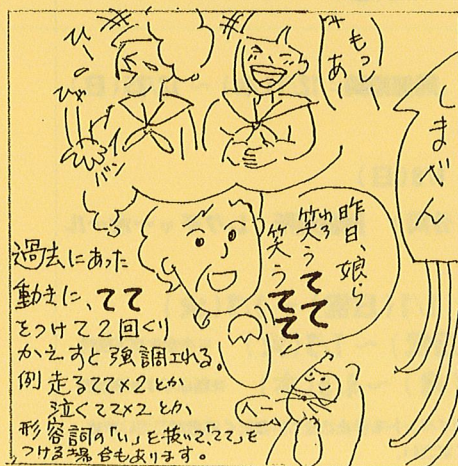 しまべん
もっしょ
あー
ひー
ひゃ
バン
昨日、娘ら
笑うてて
笑うてて
わろ
過去にあった
動きに、てて
をつけて2回くり
かえすと強調される。
例 走るてて×2とか
泣くてて×2とか、
形容詞の「い」を抜いて「てて」を
つける場合もあります。
へー